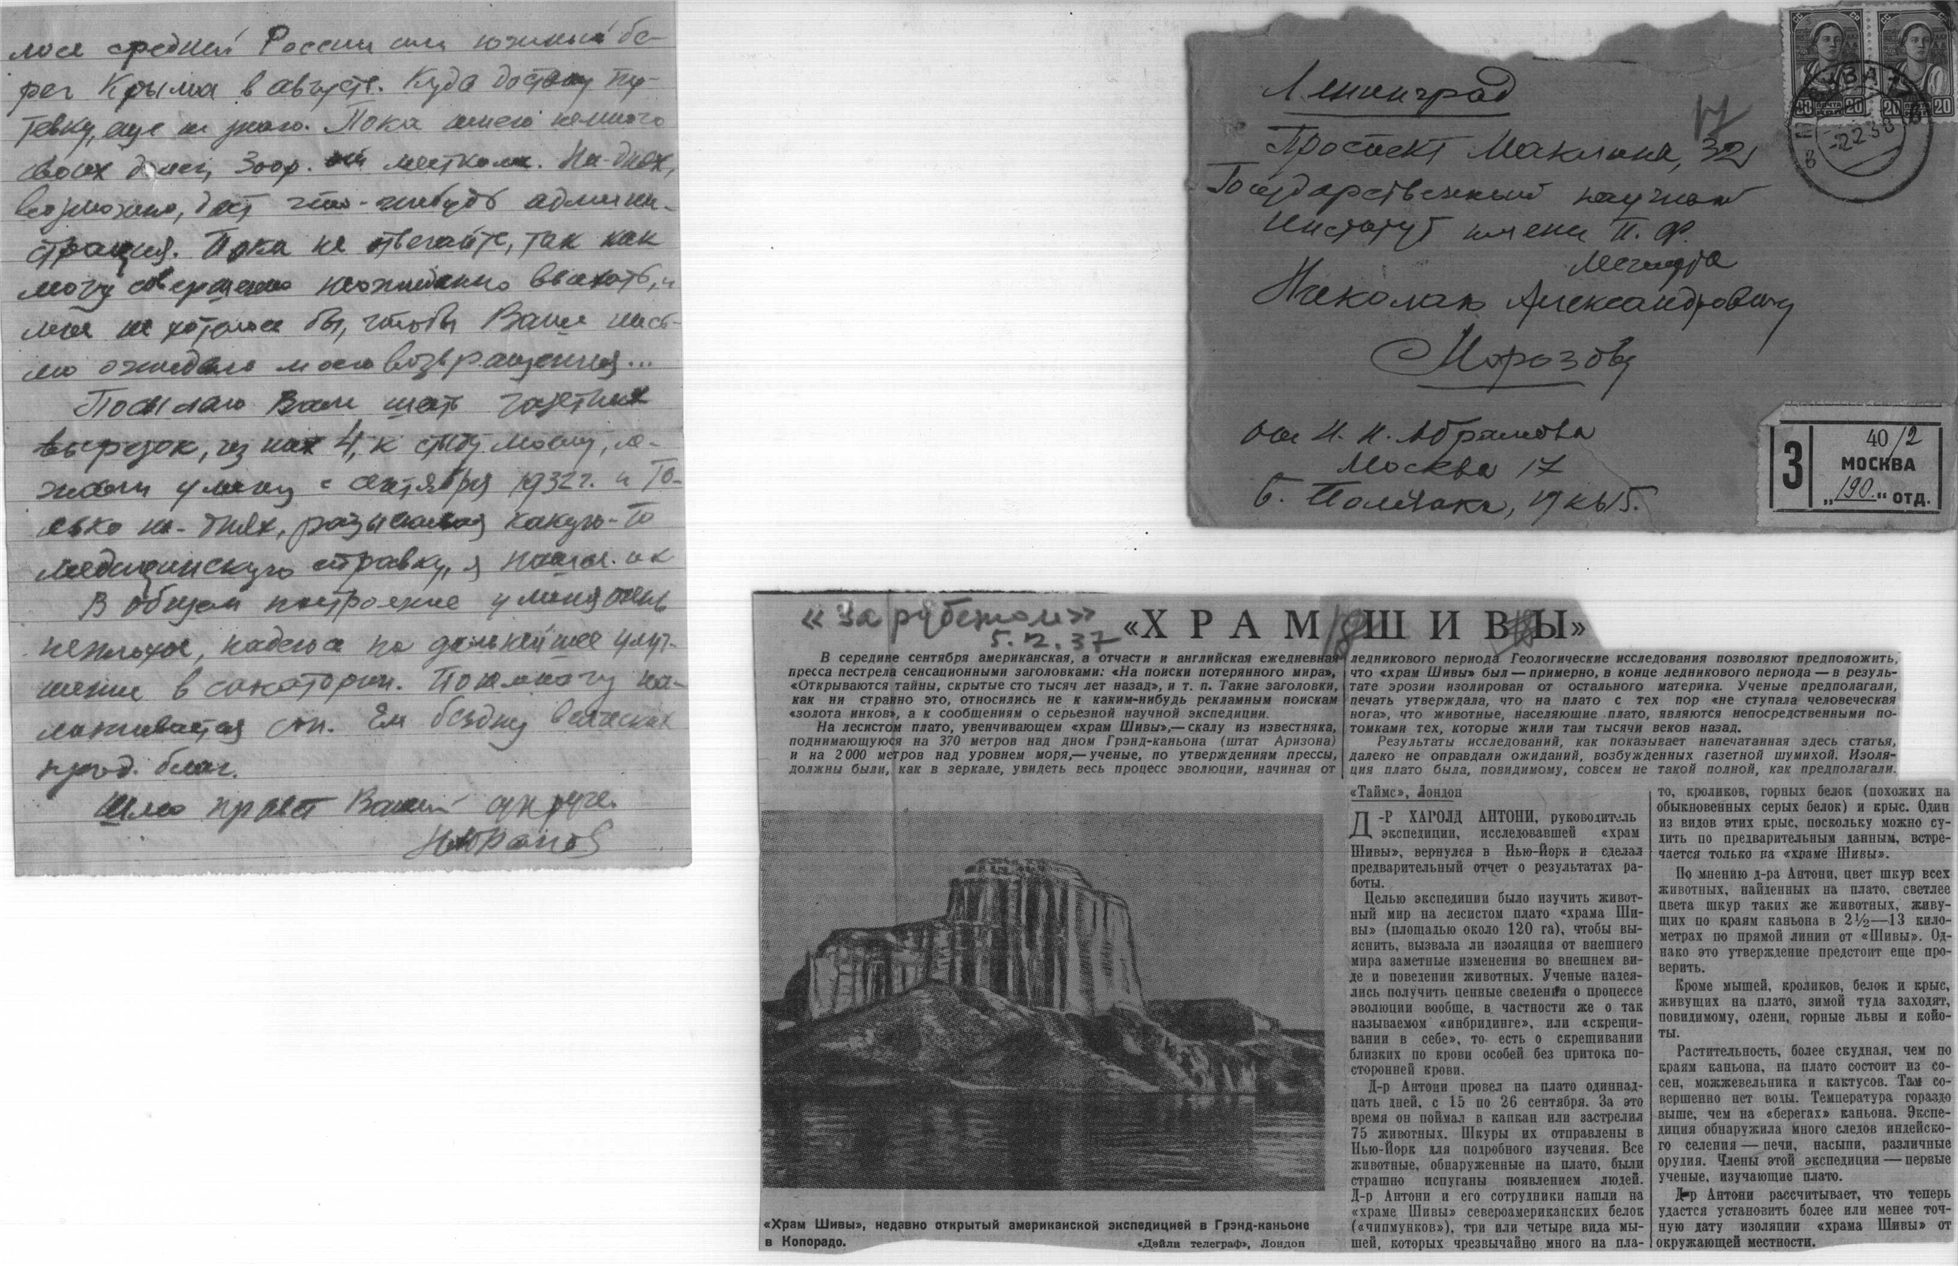 лосе средней России или южный бе-
рег Крыма в августе. Куда достану пу-
тевку, еще не знаю. Пока имею немного
своих денег, 300 р. местком. На-днях,
возможно, даст что-нибудь админи-
страция. Пока не отвечайте, так как
могу совершенно неожиданно выехать, и
мне не хотелось бы, чтобы Ваше пись-
мо ожидало моего возвращения...
Посылаю Вам шесть газетных
вырезок, из них 4, к стыду моему, ле-
жали у меня с октября 1932 г. и то-
лько на-днях, разыскивая какую-то
медицинскую справку, я нашел их
В общем настроение у меня очень
неплохое, надеюсь на дальнейшее улуч-
шение в санатории. Понемногу на-
лаживается сон. Ем бездну всяческих
прод. благ.
Шлю привет Вашей супруге.
НАбрамов
Ленинград
Проспект Маклина, 32
Государственный научный
Институт имени П. Ф.
Лесгафта
Николаю Александровичу
Морозову
17
СС СР
20 ПОЧТА КОП 20
20 20
МОСКВА
-2 2 38
от Н. Н. Абрамова
Москва 17
Б. Полянка, 19 кв 15.
З
40/2
МОСКВА
„190.“ ОТД.
«За рубежом»
5.12.37
18
«ХРАМ ШИВЫ»
В середине сентября американская, а отчасти и английская ежедневная
пресса пестрела сенсационными заголовками: «На поиски потерянного мира»,
«Открываются тайны, скрытые сто тысяч лет назад», и т. п. Такие заголовки,
как ни странно это, относились не к каким-нибудь рекламным поискам
«золота инков», а к сообщениям о серьезной научной экспедиции.
На лесистом плато, увенчивающем «храм Шивы»,— скалу из известняка,
поднимающуюся на 370 метров над дном Грэнд-каньона (штат Аризона)
и на 2 000 метров над уровнем моря,— ученые, по утверждениям прессы,
должны были, как в зеркале, увидеть весь процесс эволюции, начиная от
ледникового периода. Геологические исследования позволяют предположить,
что «храм Шивы» был — примерно, в конце ледникового периода — в резуль-
тате эрозии изолирован от остального материка. Ученые предполагали,
печать утверждала, что на плато с тех пор «не ступала человеческая
нога», что животные, населяющие плато, являются непосредственными по-
томками тех, которые жили там тысячи веков назад.
Результаты исследований, как показывает напечатанная здесь статья,
далеко не оправдали ожиданий, возбужденных газетной шумихой. Изоля-
ция плато была, повидимому, совсем не такой полной, как предполагали.
«Храм Шивы», недавно открытый американской экспедицией в Грэнд-каньоне
в Колорадо.
«Дэйли телеграф», Лондон
«Таймс», Лондон
Д-Р ХАРОЛД АНТОНИ, руководитель
экспедиции, исследовавшей «храм
Шивы», вернулся в Нью-Йорк и сделал
предварительный отчет о результатах ра-
боты.
Целью экспедиции было изучить живот-
ный мир на лесистом плато «храма Ши-
вы» (площадью около 120 га), чтобы вы-
яснить, вызвала ли изоляция от внешнего
мира заметные изменения во внешнем ви-
де и поведении животных. Ученые надея-
лись получить ценные сведения о процессе
эволюции вообще, в частности же о так
называемом «инбридинге», или «скрещи-
вании в себе», то есть о скрещивании
близких по крови особей без притока по-
сторонней крови.
Д-р Антони провел на плато одиннад-
цать дней, с 15 по 26 сентября. За это
время он поймал в капкан или застрелил
75 животных. Шкуры их отправлены в
Нью-Йорк для подробного изучения. Все
животные, обнаруженные на плато, были
страшно испуганы появлением людей.
Д-р Антони и его сотрудники нашли на
«храме Шивы» североамериканских белок
(«чипмунков»), три или четыре вида мы-
шей, которых чрезвычайно много на пла-
то, кроликов, горных белок (похожих на
обыкновенных серых белок) и крыс. Один
из видов этих крыс, поскольку можно су-
дить по предварительным данным, встре-
чается только на «храме Шивы».
По мнению д-ра Антони, цвет шкур всех
животных, найденных на плато, светлее
цвета шкур таких же животных, живу-
щих по краям каньона в 2½—13 кило-
метрах по прямой линии от «Шивы». Од-
нако это утверждение предстоит еще про-
верить.
Кроме мышей, кроликов, белок и крыс,
живущих на плато, зимой туда заходят,
повидимому, олени, горные львы и койо-
ты.
Растительность, более скудная, чем по
краям каньона, на плато состоит из со-
сен, можжевельника и кактусов. Там со-
вершенно нет воды. Температура гораздо
выше, чем на «берегах» каньона. Экспе-
диция обнаружила много следов индейско-
го селения — печи, насыпи, различные
орудия. Члены этой экспедиции — первые
ученые, изучающие плато.
Д-р Антони рассчитывает, что теперь
удастся установить более или менее точ-
ную дату изоляции «храма Шивы» от
окружающей местности.